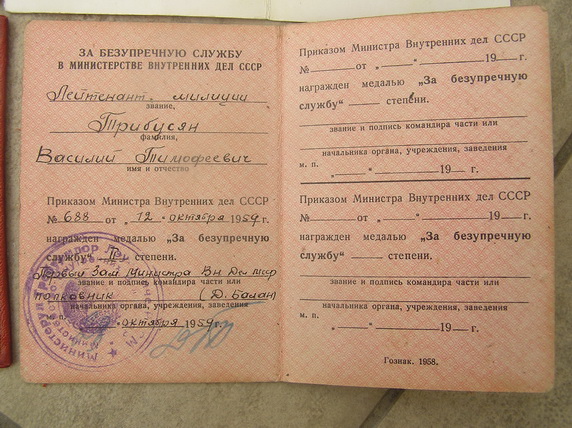 ЗА БЕЗУПРЕЧНУЮ СЛУЖБУ
В МИНИСТЕРСТВЕ ВНУТРЕННИХ ДЕЛ СССР
Лейтенант милиции
звание,
Трибусян
фамилия,
Василий Тимофеевич
имя и отчество
Приказом Министра Внутренних дел СССР
№ 688 от „12" октября 1959 г.
награжден медалью „За безупречную
службу" II степени.
Первый Зам Министра Вн Дел МССР
звание и подпись командира части или
полковник (Д. Балан)
начальника органа, учреждения, заведения
октября 1959 г.
Приказом Министра Внутренних дел СССР
№ от „ " 19 г.
награжден медалью „За безупречную
службу" степени.
звание и подпись командира части или
начальника органа, учреждения, заведения
м. п.
„ " 19 г.
Приказом Министра Внутренних дел СССР
№ от „ " 19 г.
награжден медалью „За безупречную
службу" степени.
звание и подпись командира части или
начальника органа, учреждения, заведения
м. п.
„ " 19 г.
Гознак. 1958.